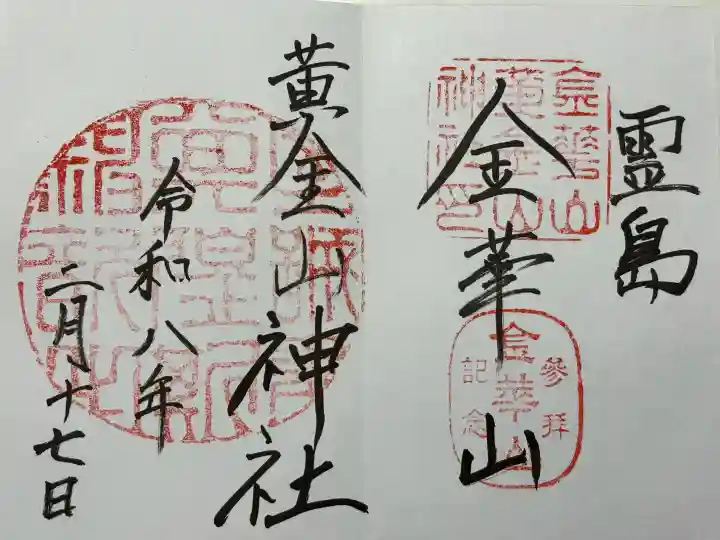 霊島
金華山
金華山黄金山神社印
参拝
金華山
記念
黄金山神社
令和八年
二月十七日